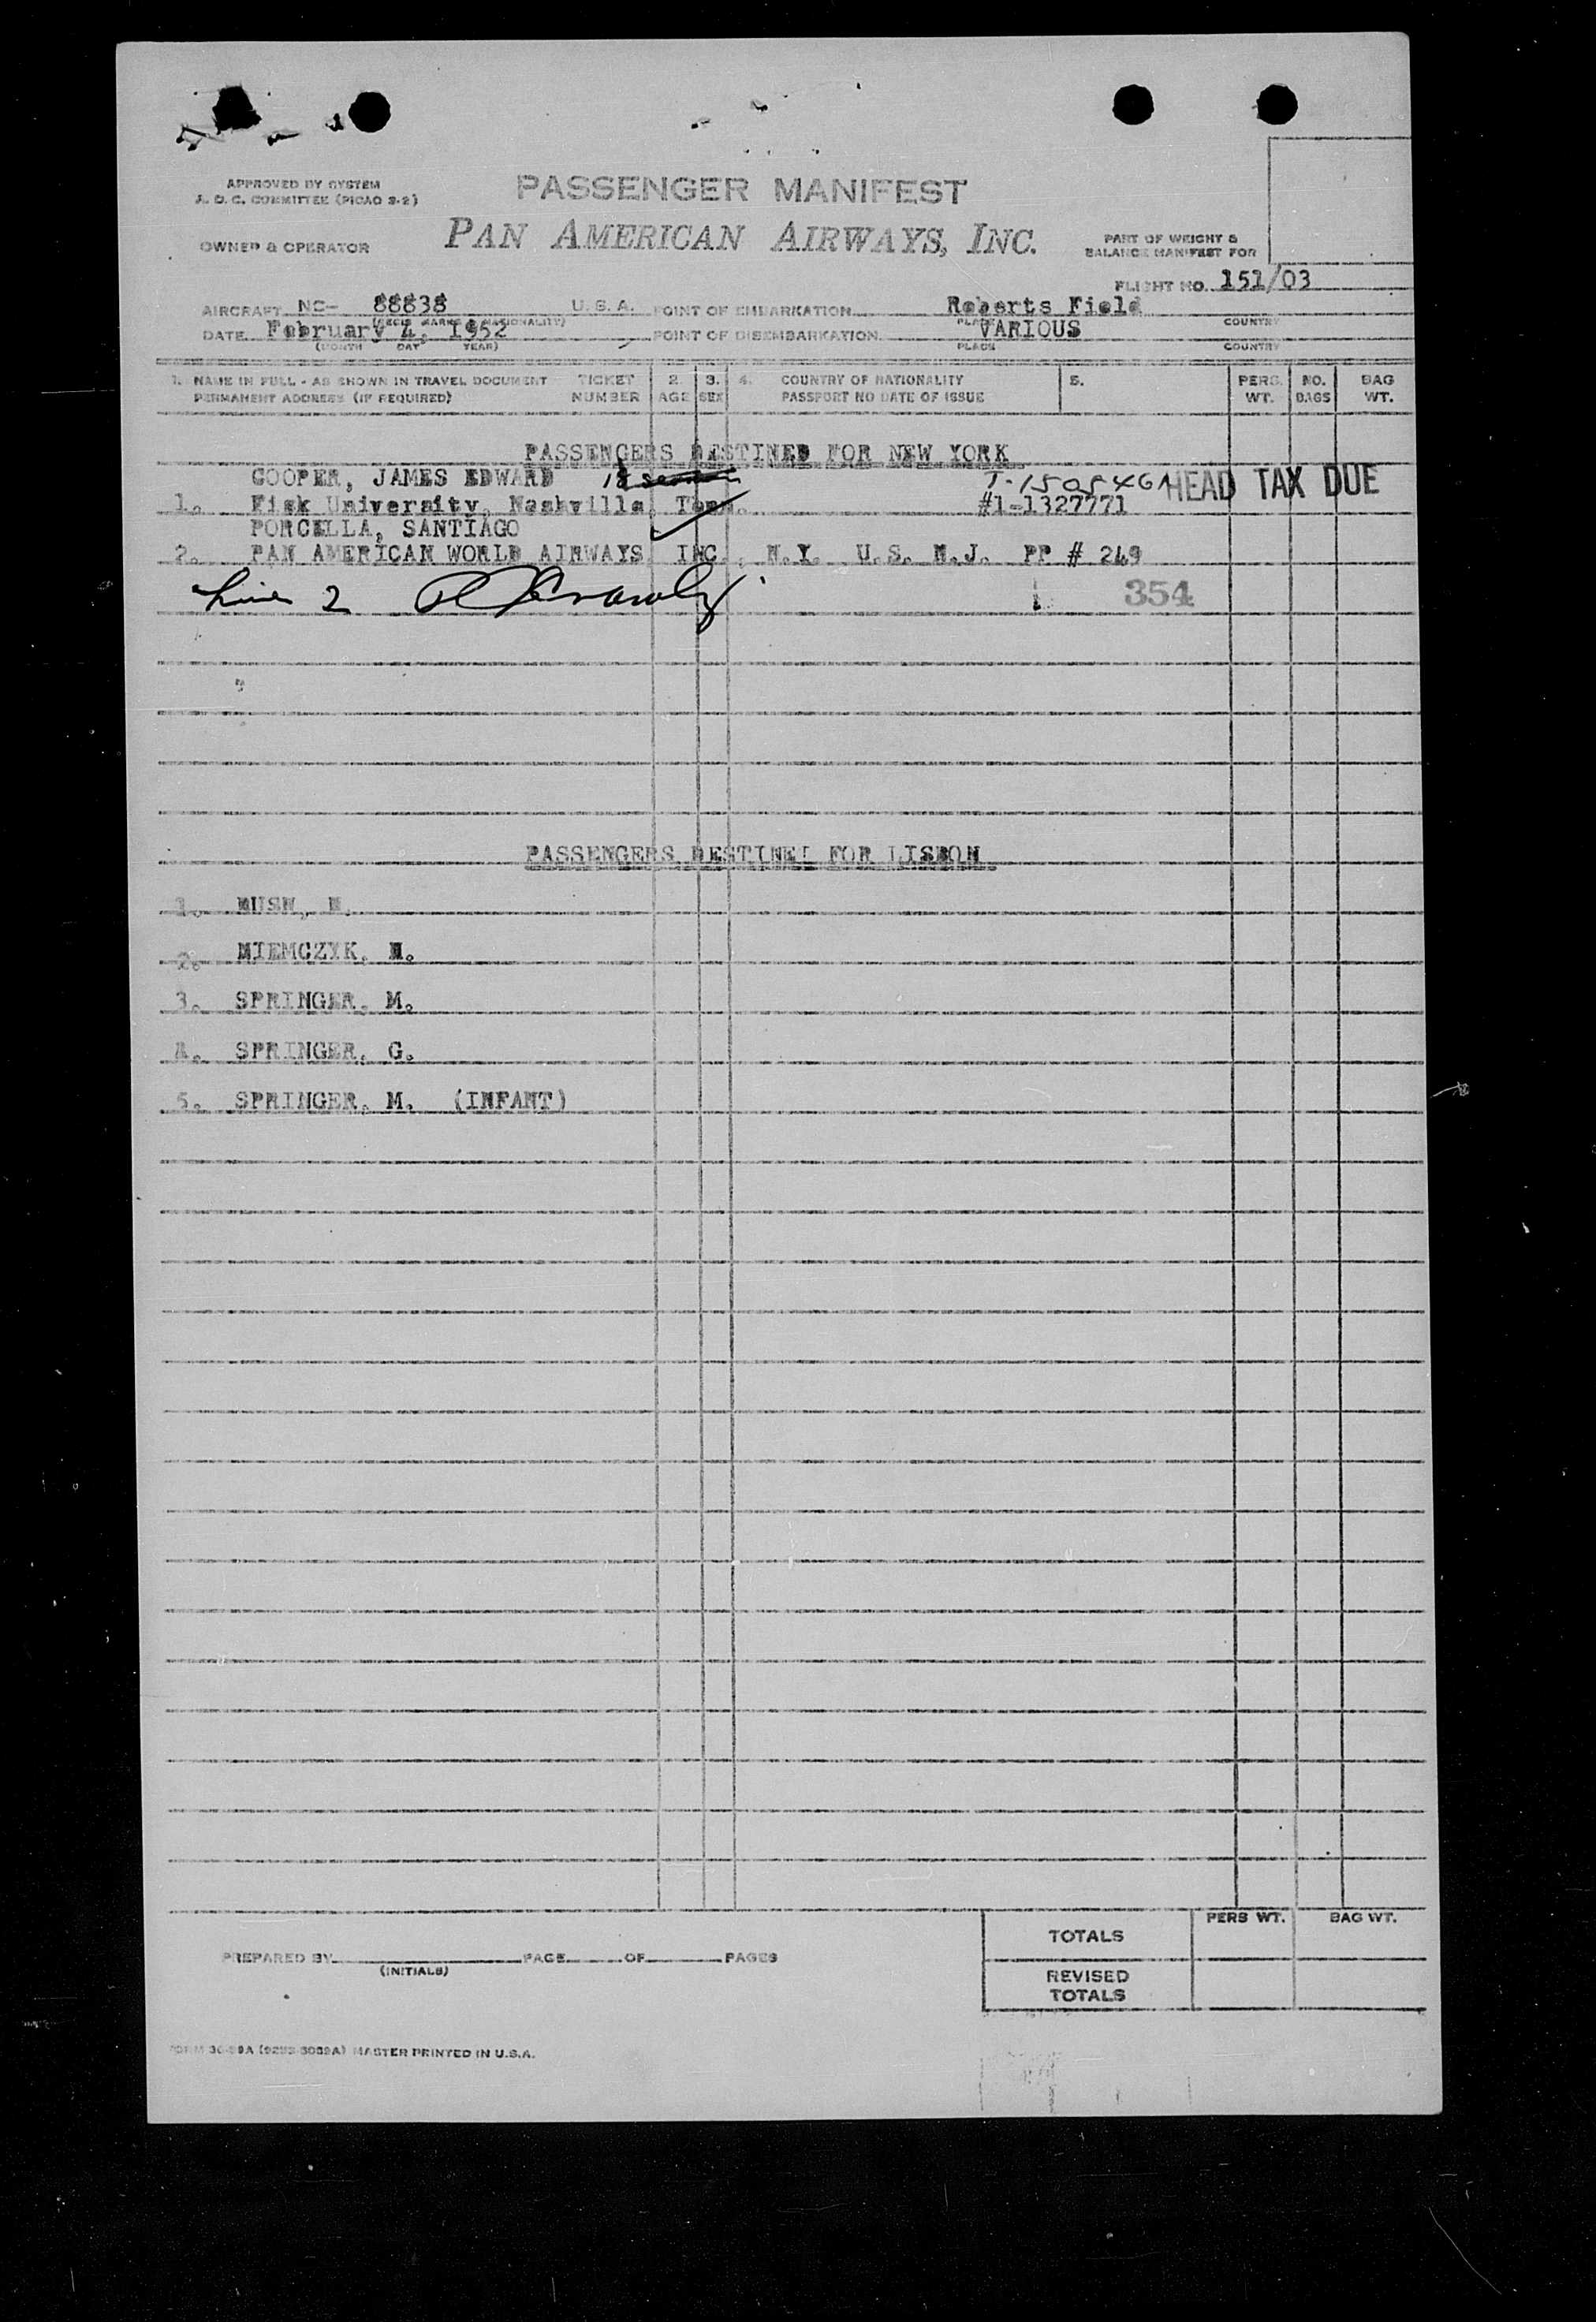 APPROVED BY SYSTEM
A. O. C. COMMITTEE (PICAO 3-2)
OWNER & OPERATOR
PASSENGER MANIFEST
PAN AMERICAN AIRWAYS, INC.
PART OF WEIGHT &
BALANCE MANIFEST FOR
FLIGHT NO. 151/03
AIRCRAFT NC- 88838 U. S. A. POINT OF EMBARKATION Roberts Field
(REGIS. MARK & NATIONALITY) PLACE COUNTRY
DATE February 4, 1952 POINT OF DISEMBARKATION VARIOUS
(MONTH DAY YEAR) PLACE COUNTRY
1. NAME IN FULL - AS SHOWN IN TRAVEL DOCUMENT TICKET 2. 3. 4. COUNTRY OF NATIONALITY 5. PERS. NO. BAG
PERMANENT ADDRESS (IF REQUIRED) NUMBER AGE SEX PASSPORT NO DATE OF ISSUE WT. BAGS WT.
PASSENGERS DESTINED FOR NEW YORK
COOPER, JAMES EDWARD T-1505461 HEAD TAX DUE
1. Fisk University, Nashville, Tenn. #1-1327771
PORCELLA, SANTIAGO
2. PAN AMERICAN WORLD AIRWAYS, INC., N.Y. U.S. N.J. PP # 249
Line 2 354
PASSENGERS DESTINED FOR LISBON
1.
2. NIEMCZYK, N.
3. SPRINGER, M.
4. SPRINGER, G.
5. SPRINGER, M. (INFANT)
TOTALS PERS WT. BAG WT.
PREPARED BY PAGE OF PAGES
(INITIALS)
REVISED
TOTALS
MASTER PRINTED IN U.S.A.